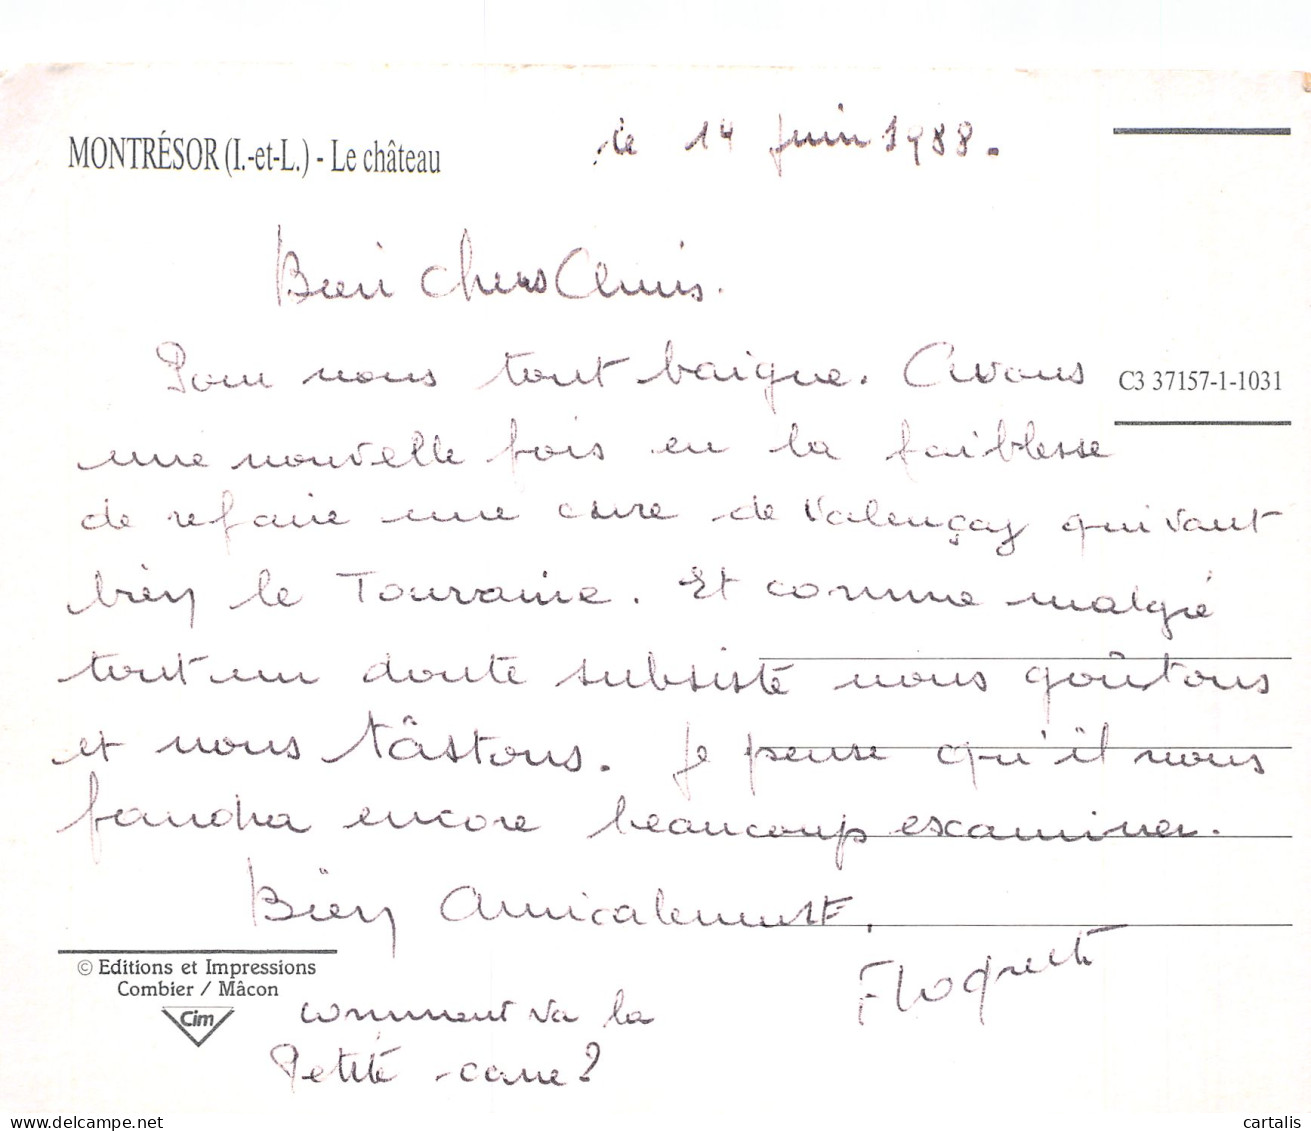 MONTRÉSOR (I.-et-L.) - Le château
le 14 juin 1988.
Bien chers Amis.
Pour nous tout baigne. Avons
C3 37157-1-1031
une nouvelle fois eu la faiblesse
de refaire une cure de Valençay qui vaut
bien le Touraine. Et comme malgré
tout un doute subsiste nous goûtons
et nous tâstons. Je pense qu'il nous
faudra encore beaucoup examiner.
Bien Amicalement,
© Editions et Impressions
Combier / Mâcon
Cim
comment va la
Petite cane ?
delcampe.net
cartalis